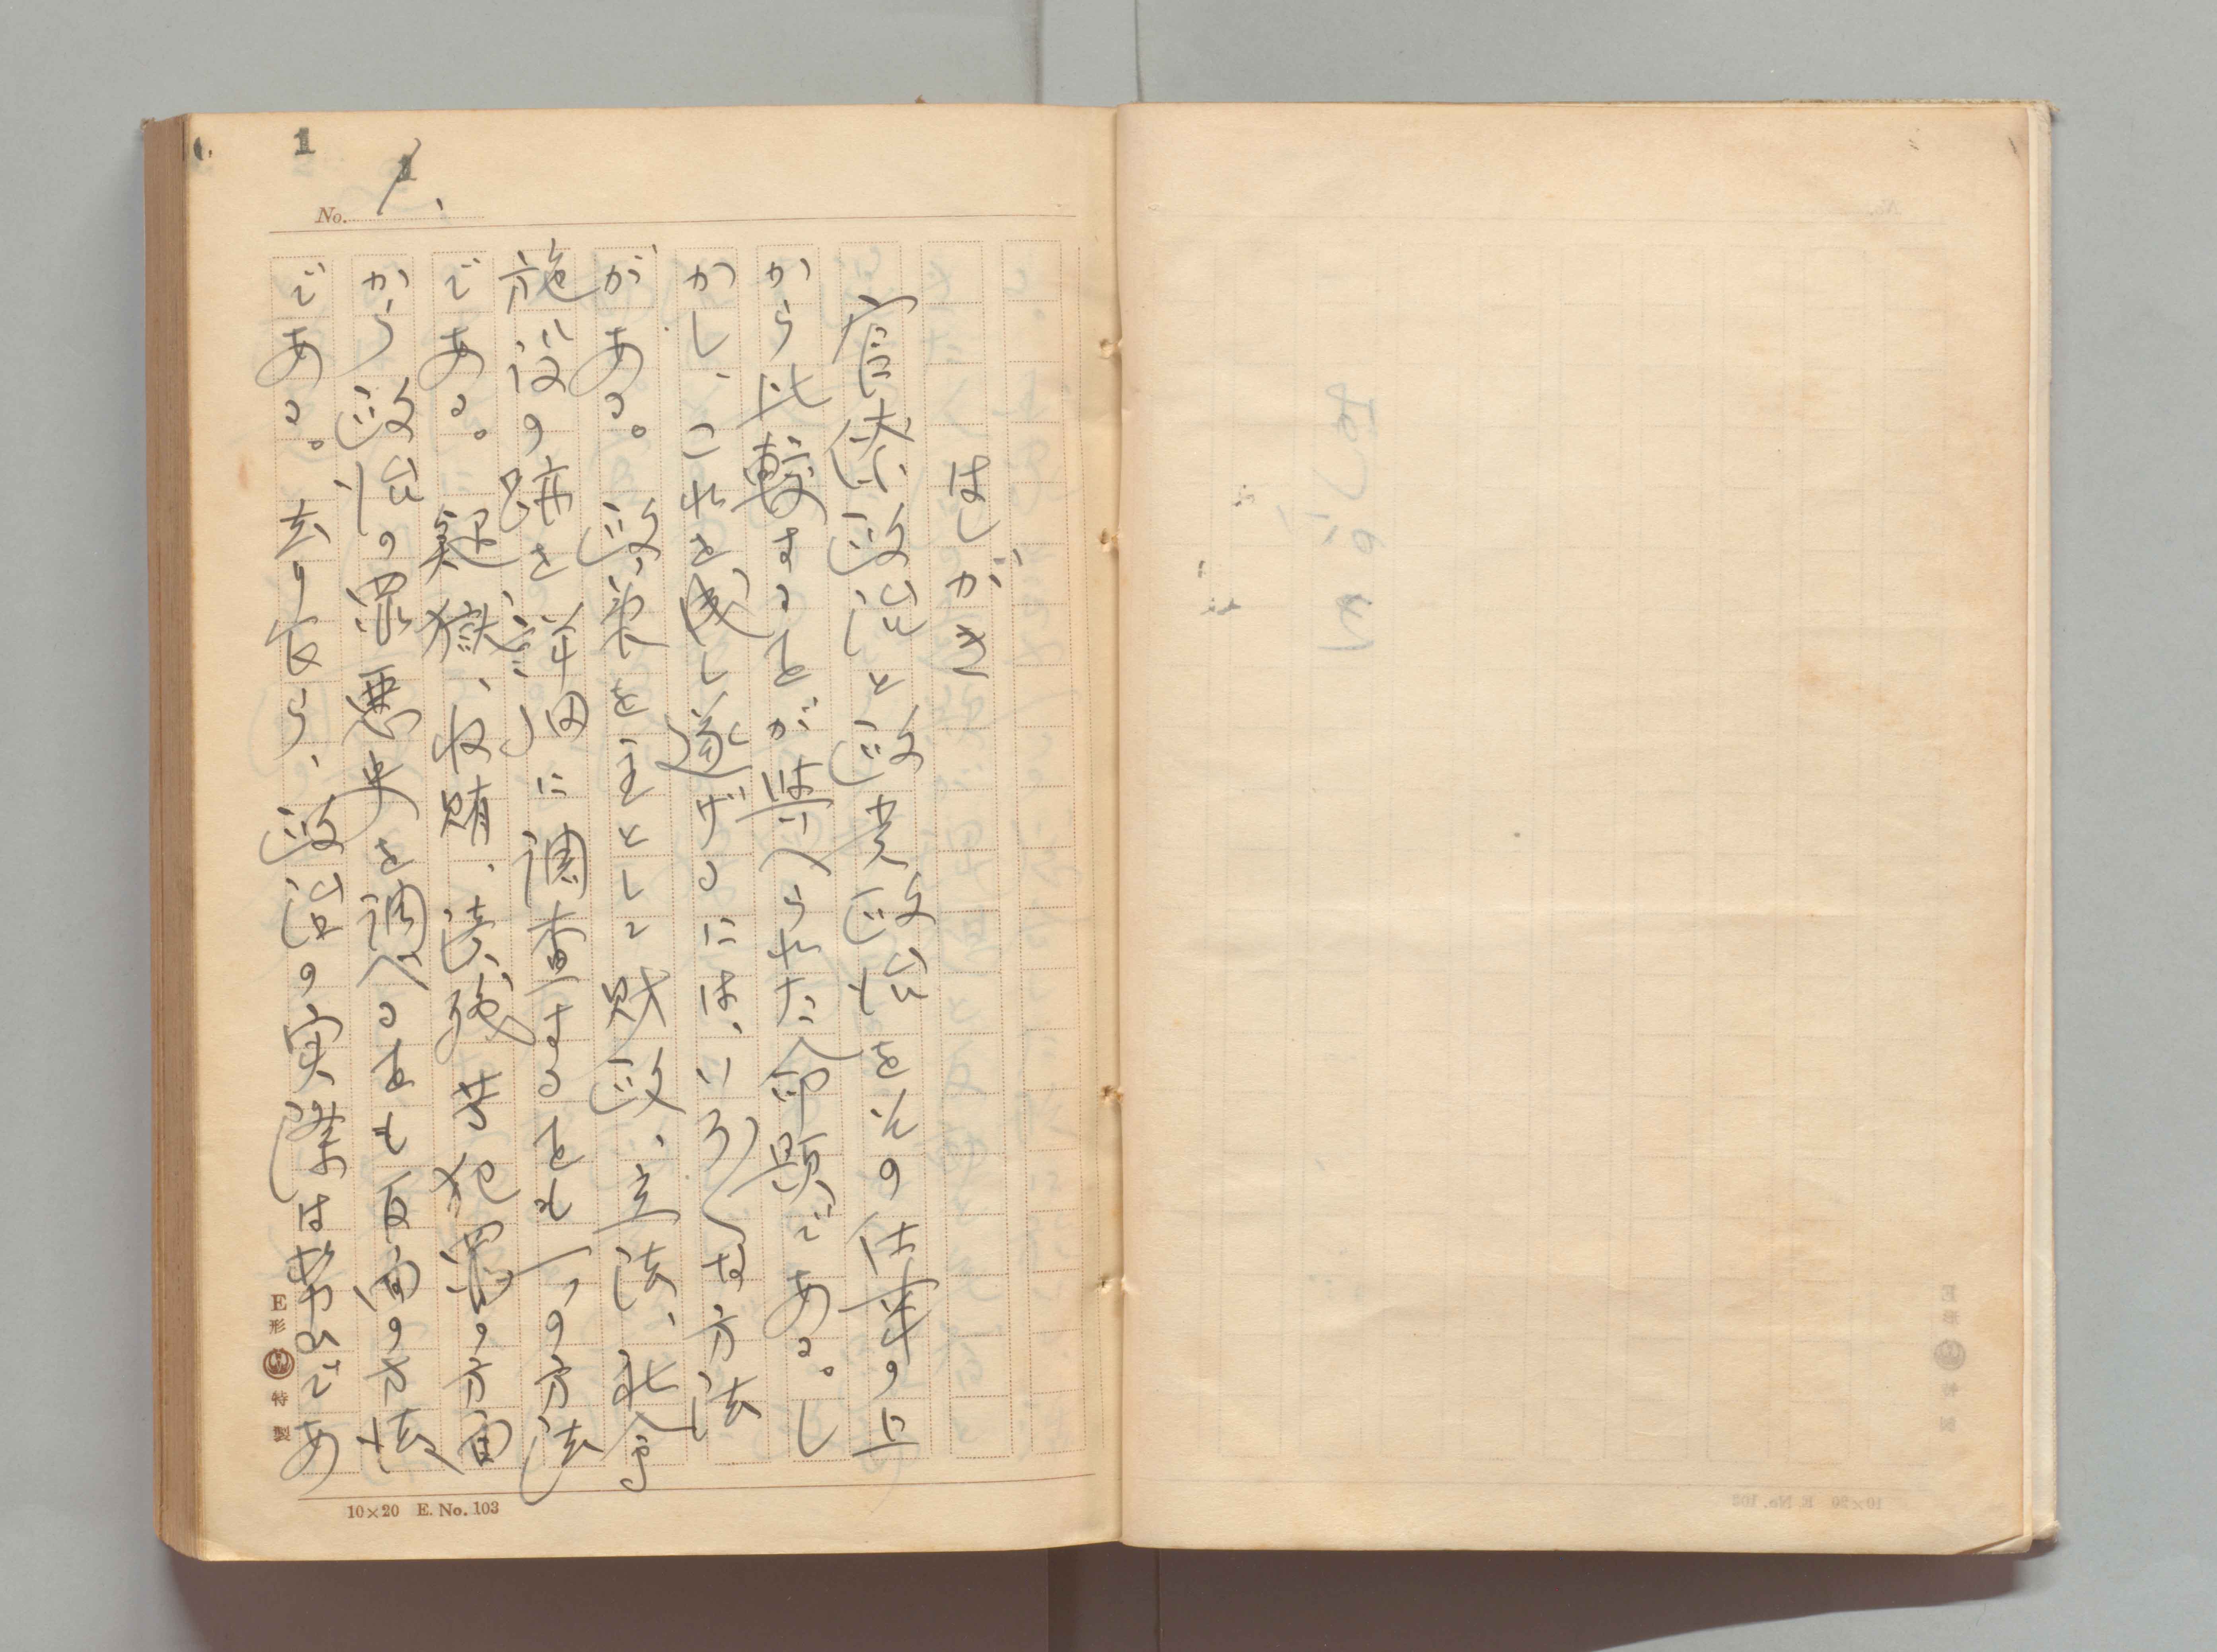 1
1
No. 1.
はしがき
官僚政治と政党政治をその仕事の上
から比較することが與へられた命題である。し
かし、これを成し遂げるには、いろ〱な方法
がある。政策を主として財政、立法、社会
施設の跡を詳細に調査することも一つの方法
である。疑獄、収賄、涜職等犯罪の方面
から政治の罪悪史を調へることも反面の方法
である。去り乍ら、政治の実際は勢ひであ
E形 特製
10×20 E. No. 103